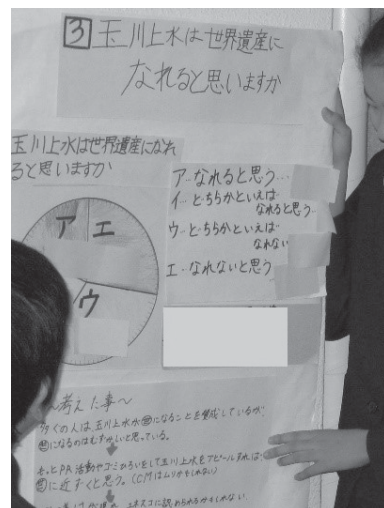 ③ 玉川上水は世界遺産に
なれると思いますか
玉川上水は世界遺産になれ
ると思いますか
ア エ
ウ
ア…なれると思う…
イ…どちらかといえば
なれると思う…
ウ…どちらかといえば
なれない
エ…なれないと思う
～考えた事～
多くの人は玉川上水が世になることを賛成しているが、
になるのはむずかしいと思っている。
もっとPR活動やゴミひろいをして玉川上水をアピールすれば、
に近ずくと思う。(CMはムリかもしれない)
ユネスコに認められるかもしれない.